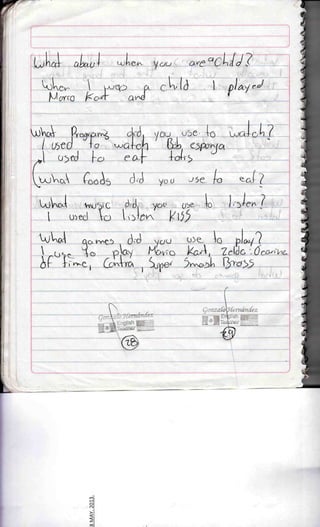 What about when you are a Child?
When I was a child I played
Mario Kart and
What Programs did you use to watch?
I used to watch Bob esponja
I used to eat
What foods did you use to eat?
What music did you use to listen?
I used to listen KISS
What games did you use to play?
I use to play Mario Kart, Zelda: Ocarina
of time, Contra, Super Smash Bross
Gonzalo Hernández
English
Gonzalo Hernández
English
28
29
8 MAY. 2013.